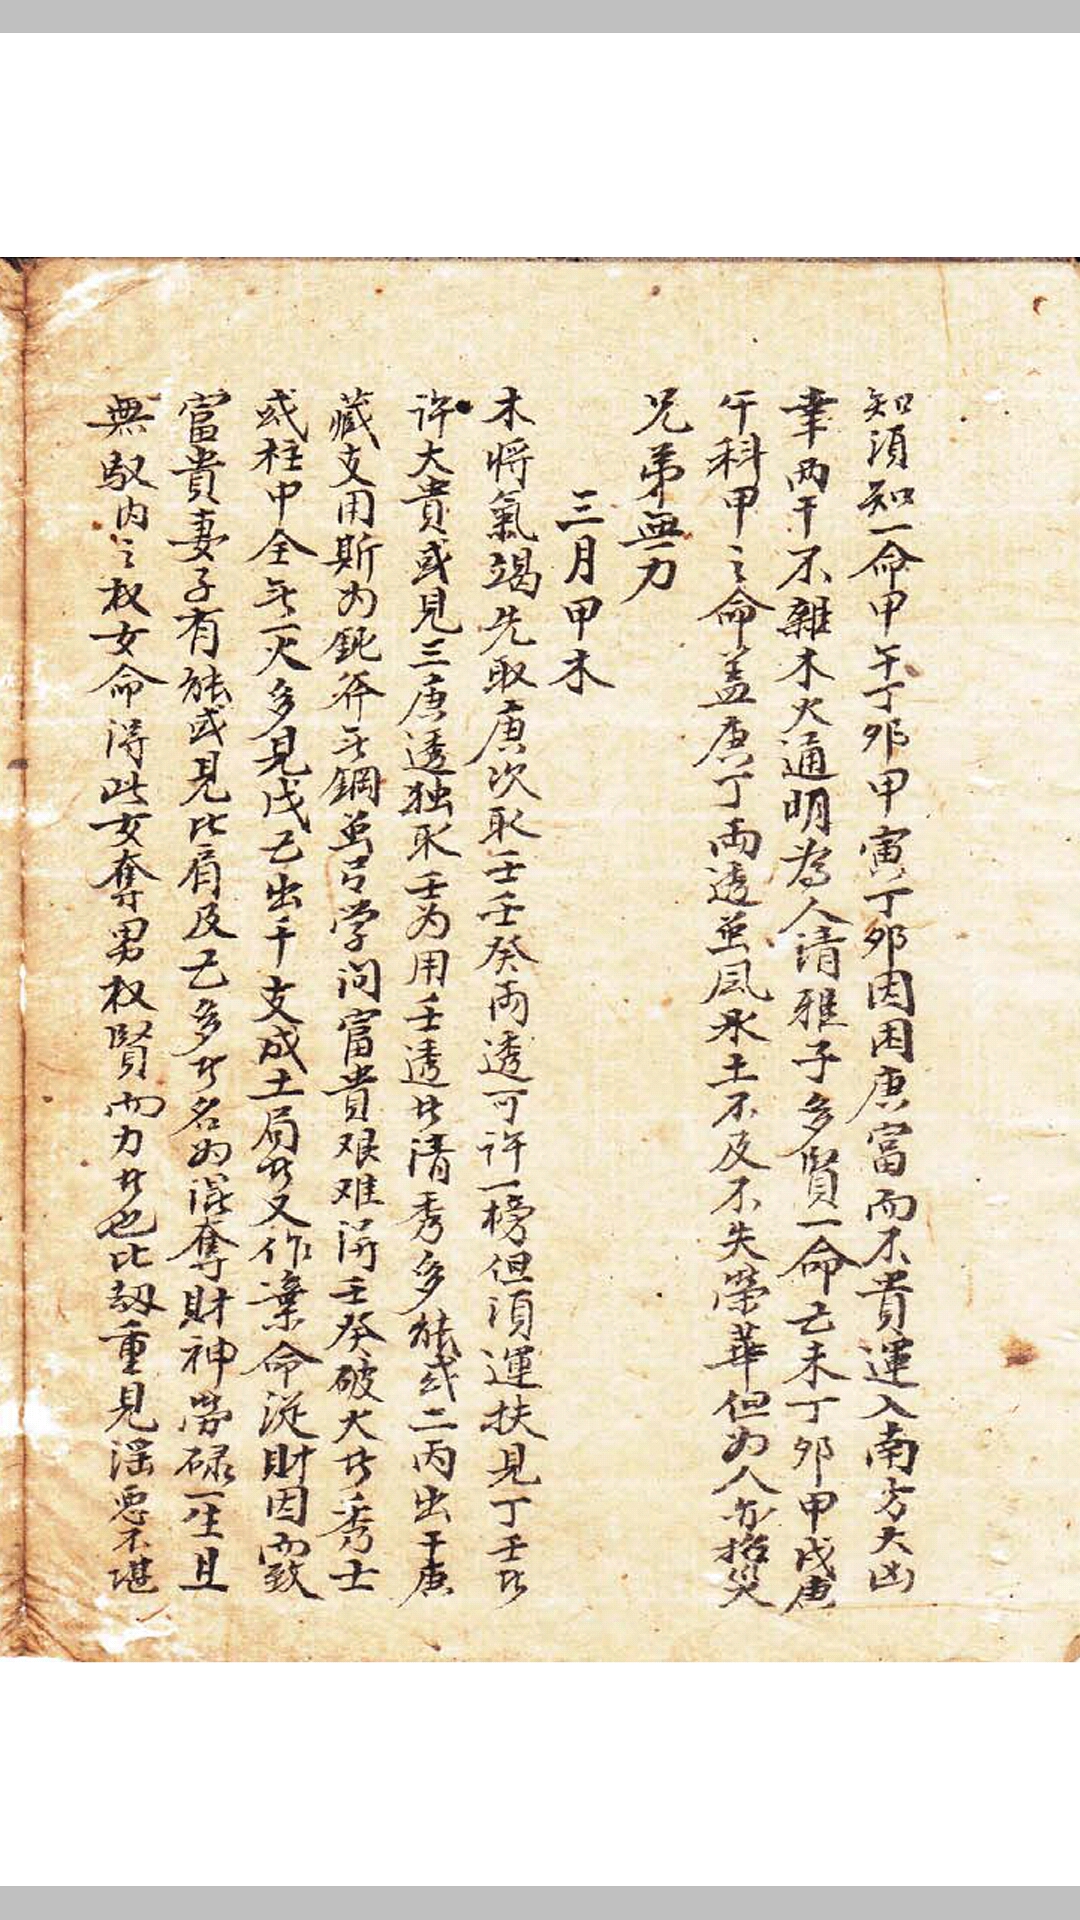 知須知一命甲午丁卯甲寅丁卯因困庚富而不貴運入南方大凶
幸兩干不雜木火通明為人清雅子多賢一命己未丁卯甲戌庚
午科甲之命盖庚丁両透並風水土不及不失榮華但为人亦招災
兄弟無力
三月甲木
木将氣竭先取庚次取壬壬癸両透可許一榜但須運扶見丁壬比
许大貴或見三庚透独取壬为用壬透廿清秀多能或二丙出干庚
藏支用斯为鈍斧无鋼並弓学问富貴艰难浔壬癸破火廿秀士
或柱中全无一火多見戊己出干支成土局廿又作棄命從財因而致
富貴妻子有能或見比肩及己多廿名为混奪財神劳碌一生且
無馭内之权女命浔此女奪男权賢而力廿也比刼重見淫恶不堪